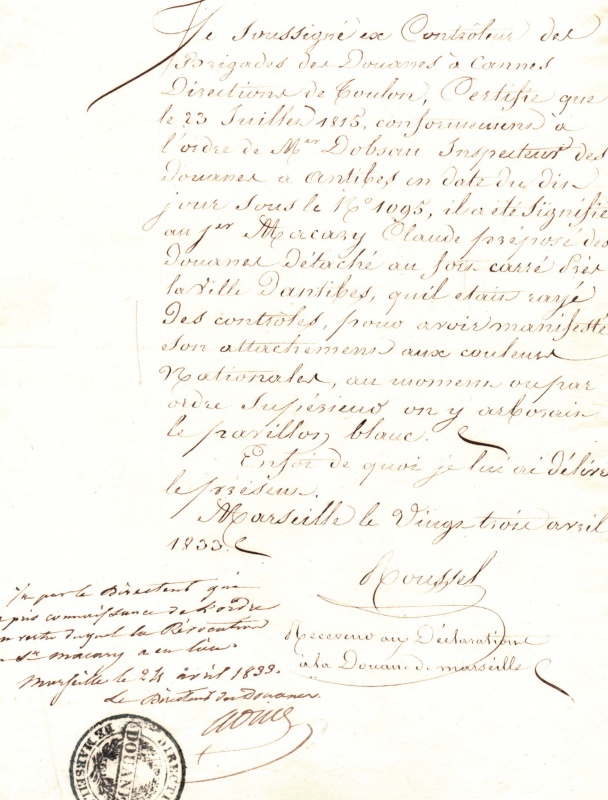 Je Soussigné ex Contrôleur des
Brigades des Douanes à Cannes
Directions de Toulon, Certifie que
le 23 Juillet 1815, conformement à
l'ordre de Mr Dobsau Inspecteur des
Douanes à Antibes en date du dix
jour sous le No 1095, il a été Signifié
au Sr Macary Claude préposé des
Douanes détaché au fort carré Près
la ville D'antibes, qu'il etait rayé
Des contrôles, pour avoir manifesté
son attachement aux couleurs
Nationales, au moment ou par
ordre Supérieur on y arborait
le pavillon blanc.
En foi de quoi je lui ai délivré
le présent.
Marseille le Vingt trois avril
1833.
Roussel
Receveur aux Déclarations
à la Douane de Marseille
Vu par le Directeur qui
pris connaissance de l'ordre
en vertu duquel la Révocation
Sr Macary a eu lieu.
Marseille le 24 avril 1833.
Le Directeur des Douanes
DIRECTI
DOUANE
DE MARSE